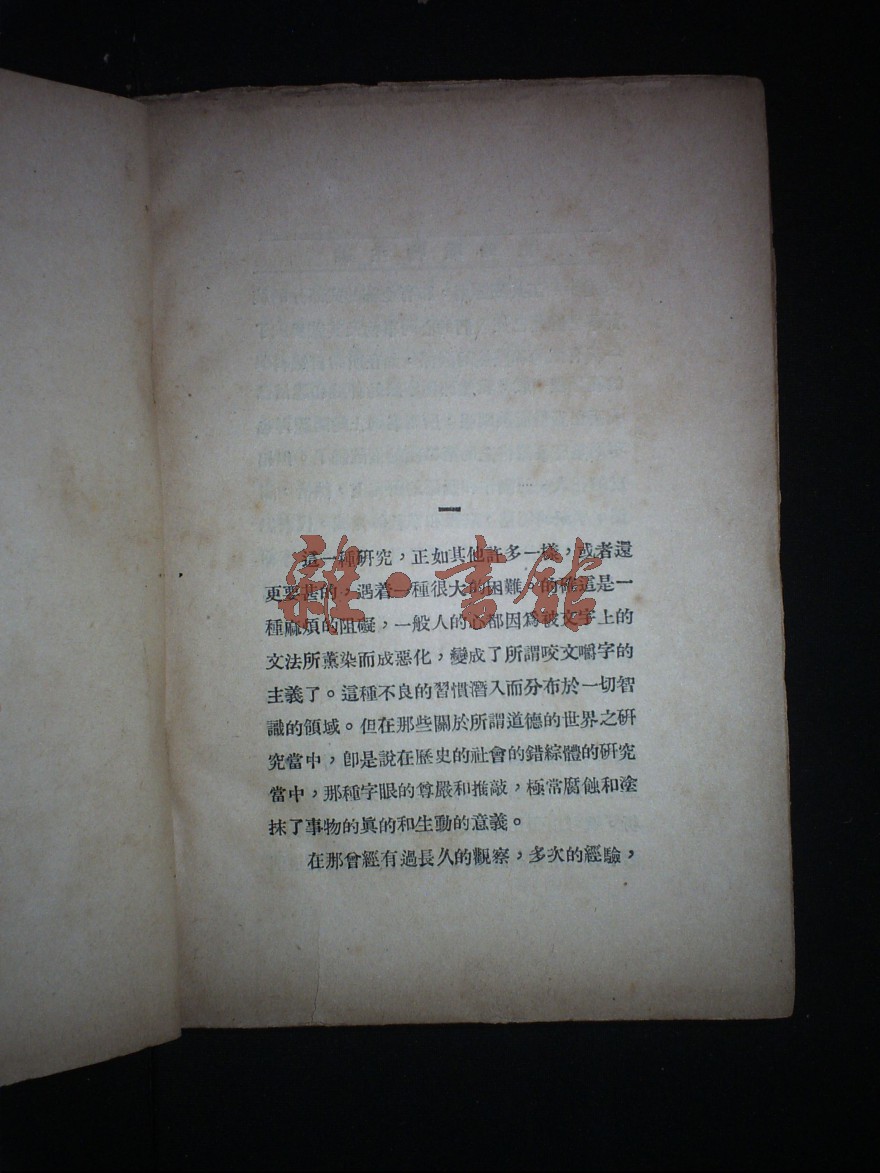 一
這一種研究，正如其他許多一樣，或者還
更要甚的，遇着一種很大的困難。的確這是一
種麻煩的阻礙，一般人的心都因爲被文字上的
文法所薰染而成惡化，變成了所謂咬文嚼字的
主義了。這種不良的習慣潛入而分布於一切智
識的領域。但在那些關於所謂道德的世界之研
究當中，卽是說在歷史的社會的錯綜體的研究
當中，那種字眼的尊嚴和推敲，極常腐蝕和塗
抹了事物的眞的和生動的意義。
在那曾經有過長久的觀察，多次的經驗，
雜·書館